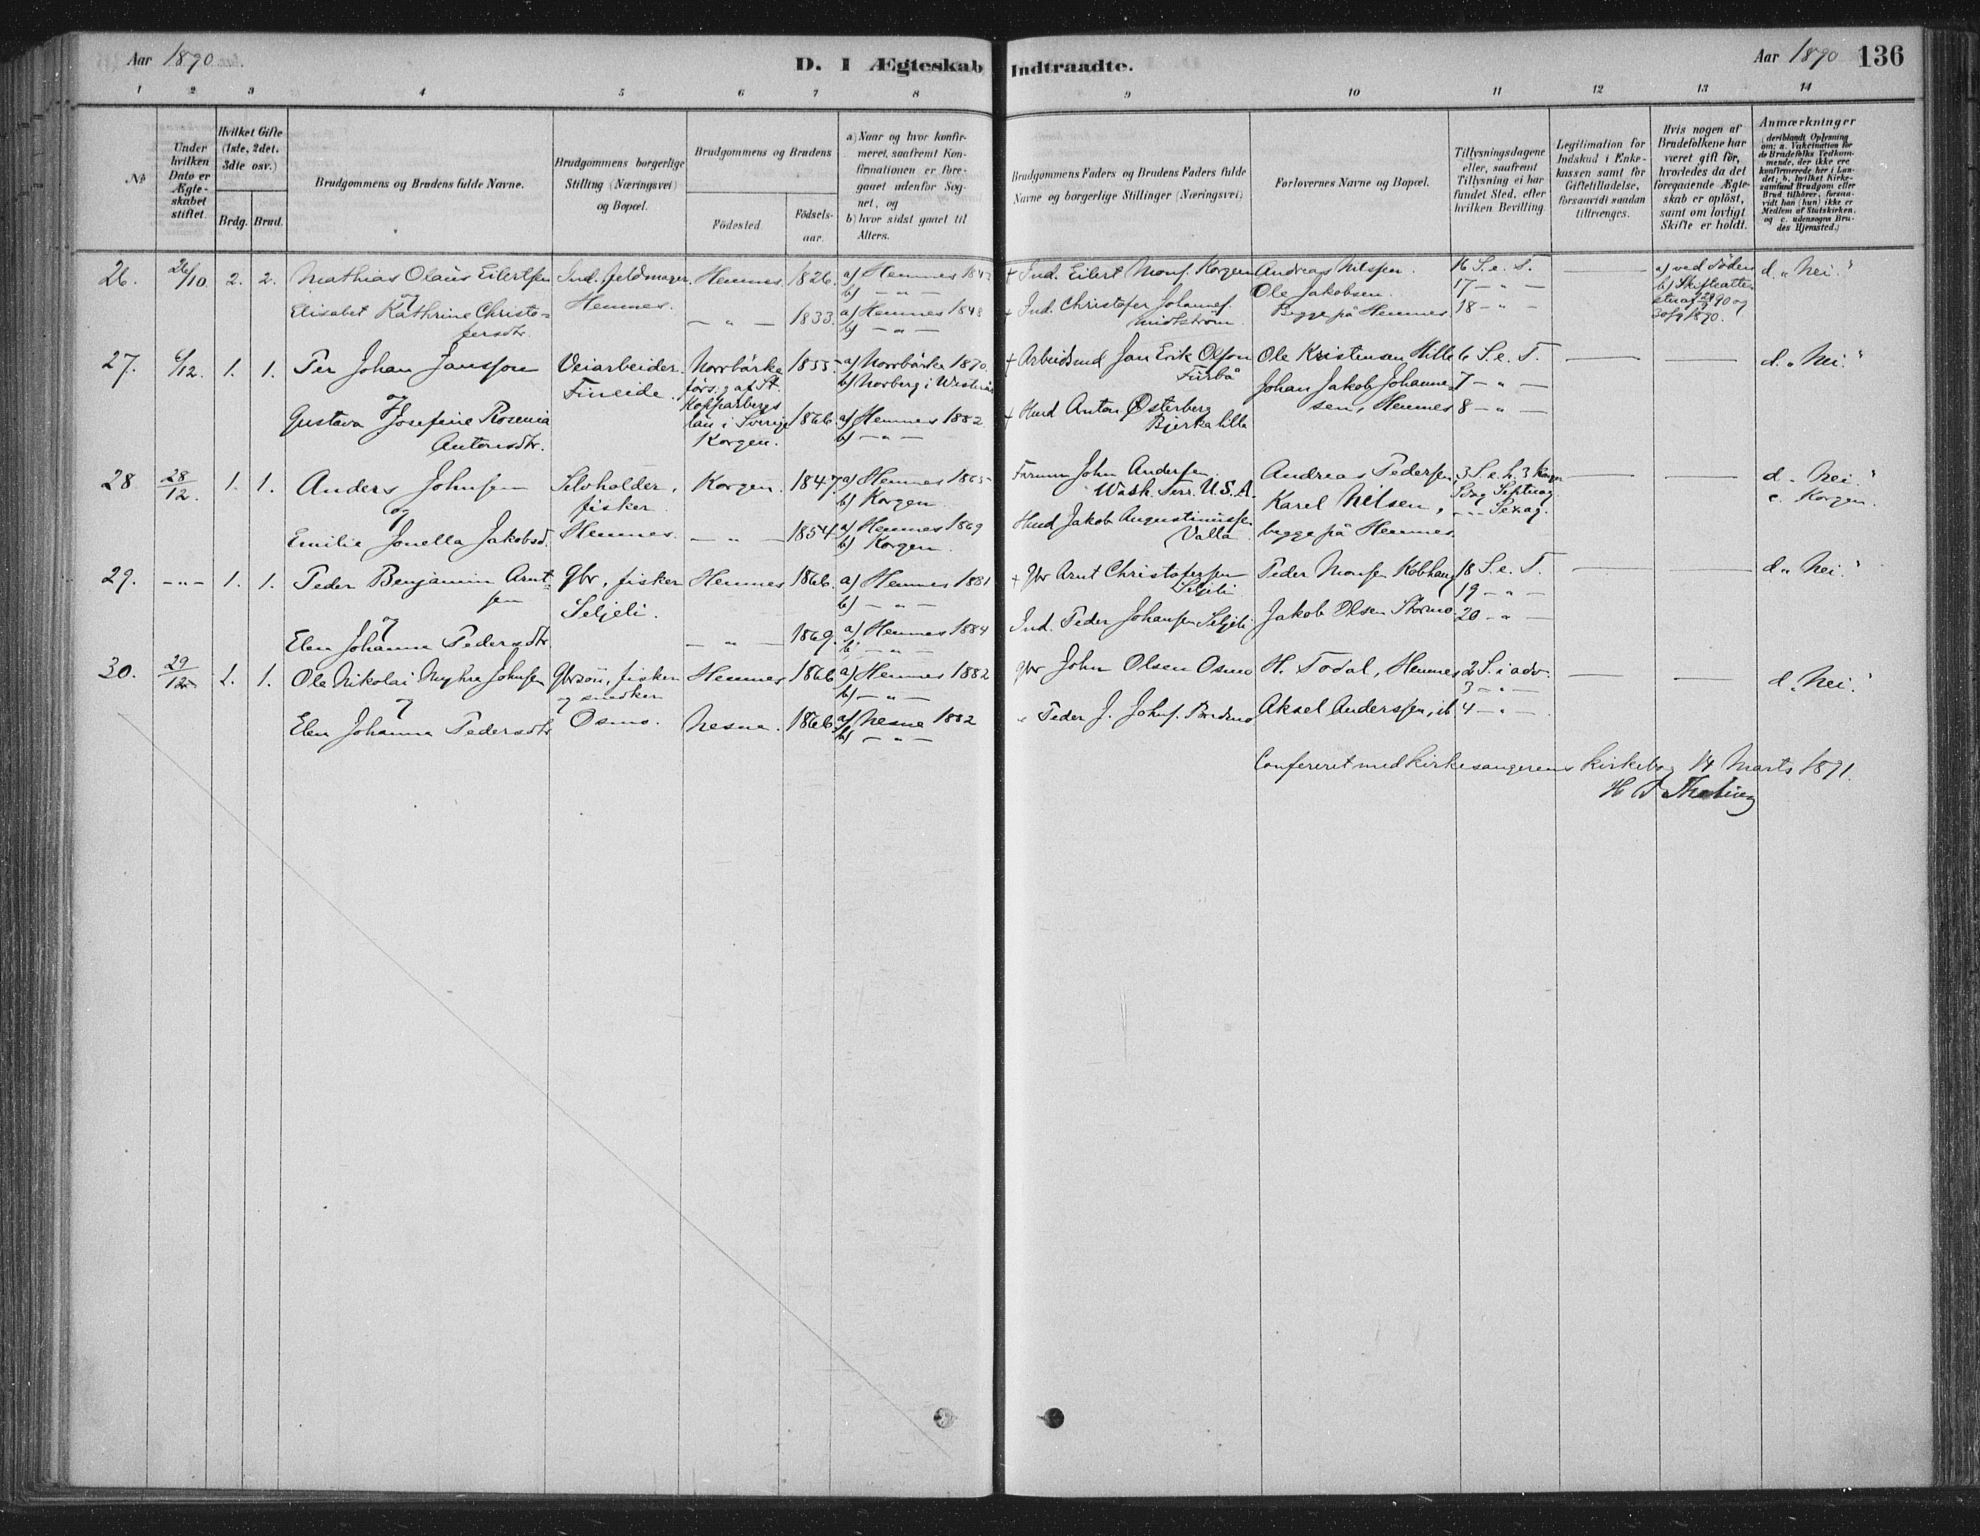 Aar 1890.
D. I Ægteskab Indtraadte.
Aar 1890 136
1 2 3 4 5 6 7 8 9 10 11 12 13 14
No
Under hvilken Dato er Ægteskabet stiftet.
Hvilket Gifte (1ste, 2det, 3die osv.)
Brdg. Brud.
Brudgommens og Brudens fulde Navne.
Brudgommens borgerlige Stilling (Næringsvei) og Bopæl.
Brudgommens og Brudens
Födested
Födselsaar.
a) Naar og hvor konfirmeret, saafremt Konfirmationen er foregaaet udenfor Sognet, og
b) hvor sidst gaaet til Alters.
Brudgommens Faders og Brudens Faders fulde Navne og borgerlige Stillinger (Næringsvei)
Forlovernes Navne og Bopæl.
Tillysningsdagene eller, saafremt Tillysning ei har fundet Sted, efter hvilken Bevilling.
Legitimation for Indskud i Enkekassen samt for Giftetilladelse, forsaavidt saadan tiltrænges.
Hvis nogen af Brudefolkene har været gift før, hvorledes da det foregaaende Ægteskab er oplöst, samt om lovligt Skifte er holdt.
Anmærkninger
26. 26/10. 2. 2. Mathias Olaus Eilertsen
Ind. feldmager Hemnes. Hemnes 1826. a) Hemnes
b) - " -
+ Ind. Eilert Mons. Korgen Andreas Nilssen. 16 S. e. T. a) ved Døden d. "Nei."
Elisabet Kathrine Christofersdtr.
- " - 1833. a) Hemnes 1848
b) - " -
+ Ind. Christofer Johannes. Midtstrøm
Ole Jakobsen. Begge på Hemnes
17 - " -
18 - " -
27. 6/12. 1. 1. Per Johan Jansson
Veiarbeider Fineide.
Norrbärke förs. g af St. Kopparbergs län i Sverige 1855. a) Norrbärke 1870.
b) Norberg i
+ Arbeidsmd Jan Erik Olsson
Ole Kristensen 6 S. e. T. d. "Nei."
Gustava Josefine Rosenia Antonsdtr.
Korgen. 1866. a) Hemnes 1882
b) - " -
+ Husmd Anton Østerberg Bjerkalilla
Johan Jakob Johannesen, Hemnes
7 - " -
8 - " -
28. 28/12. 1. 1. Anders Johnsen
og
Selvholder, fisker Hemnes. Korgen. 1847. a) Hemnes 1865
b) Korgen.
Farmer John Andersen. Wash. Terr. U.S.A.
Andreas Pedersen
Karel Nilsen,
begge på Hemnes
d. "Nei."
c. Korgen.
Emilie Jonella Jakobsd.
- " - 1854. a) Hemnes 1869
b) Korgen.
Husmd Jakob Augustinussen Valla
29. - " - 1. 1. Peder Benjamin Arntsen
Gbr, fisker Seljeli. Hemnes 1866. a) Hemnes 1881
b) - " -
+ Gbr Arnt Christofersen Seljeli
Peder Monsen Kobhaug 18 S. e. T. d. "Nei."
Elen Johanna Pedersdtr
- " - 1869. a) Hemnes 1884
b) - " -
Ind. Peder Johansen Seljeli
Jakob Olsen Stormo.
19 - " -
20 - " -
30. 29/12 1. 1. Ole Nikolai Myhre Johnsen
Gbrsøn, fisker og snedker Osmo. Hemnes 1866 a) Hemnes 1882
b) - " -
Gbr John Olsen Osmo H. Todal, Hemnes 2 S. i adv. d. "Nei."
3 - " -
Elen Johanna Pedersdtr
Nesne. 1866. a) Nesne 1882
b) - " -
" Peder J. Johns.
Aksel Anderssen, ib. 4 - " -
Confereret med Kirkesangerens Kirkebog 14 Marts 1891.